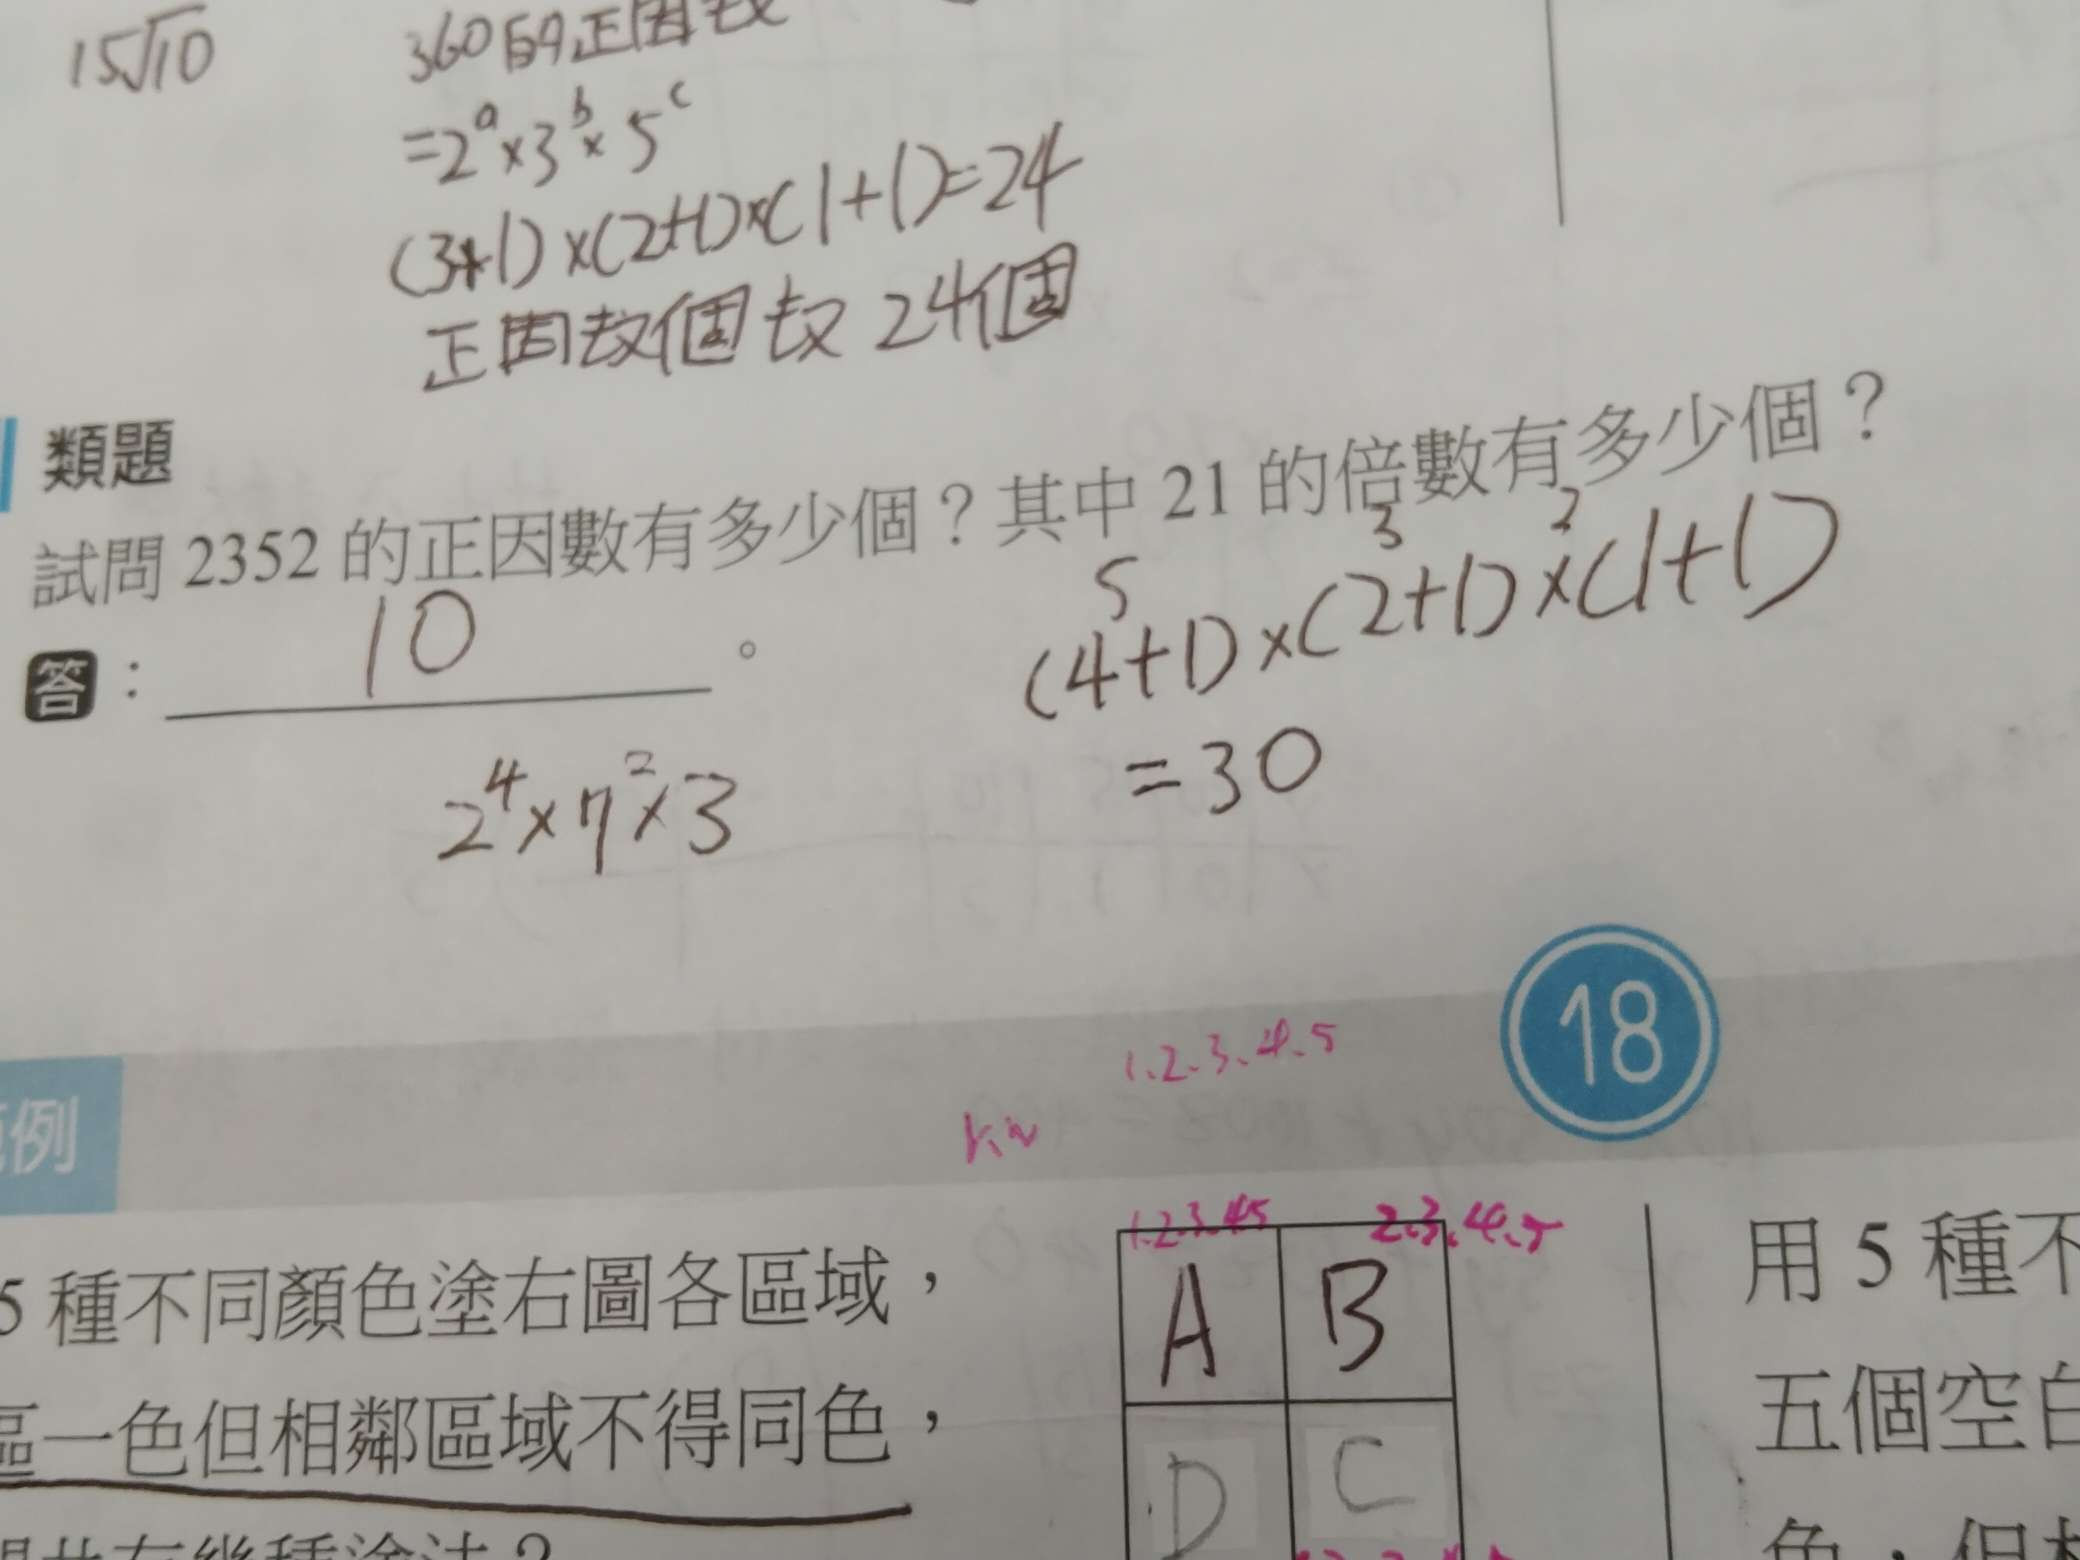 15√10
360的正因数
=2^a×3^b×5^c
(3+1)×(2+1)×(1+1)=24
正因数個数24個
類題
試問 2352 的正因數有多少個？其中 21 的倍數有多少個？
答：10。
5 3 2
(4+1)×(2+1)×(1+1)
=30
2^4×7^2×3
18
1.2.3.4.5
範例
1.2.3.4.5 2.3.4.5
A B
5 種不同顏色塗右圖各區域，
區一色但相鄰區域不得同色，
D C
用 5 種不
五個空白